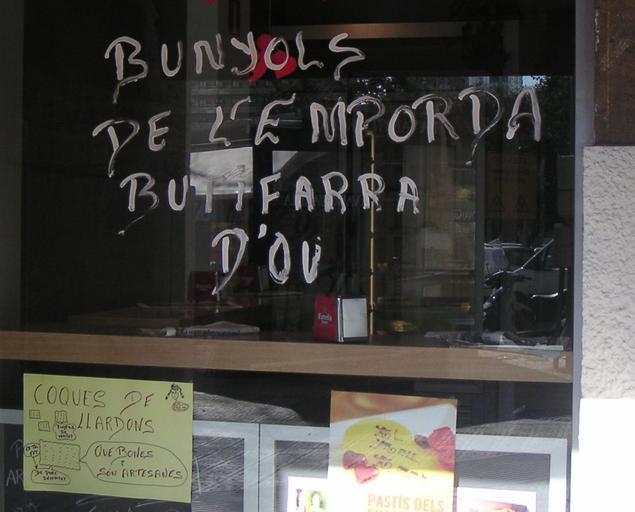 BUNYOLS
DE L'EMPORDA
BUTIFARRA
D'OU
Estrella
COQUES DE
LLARDONS
QUE BONES
i
SÓN ARTESANES
PASTÍS DELS